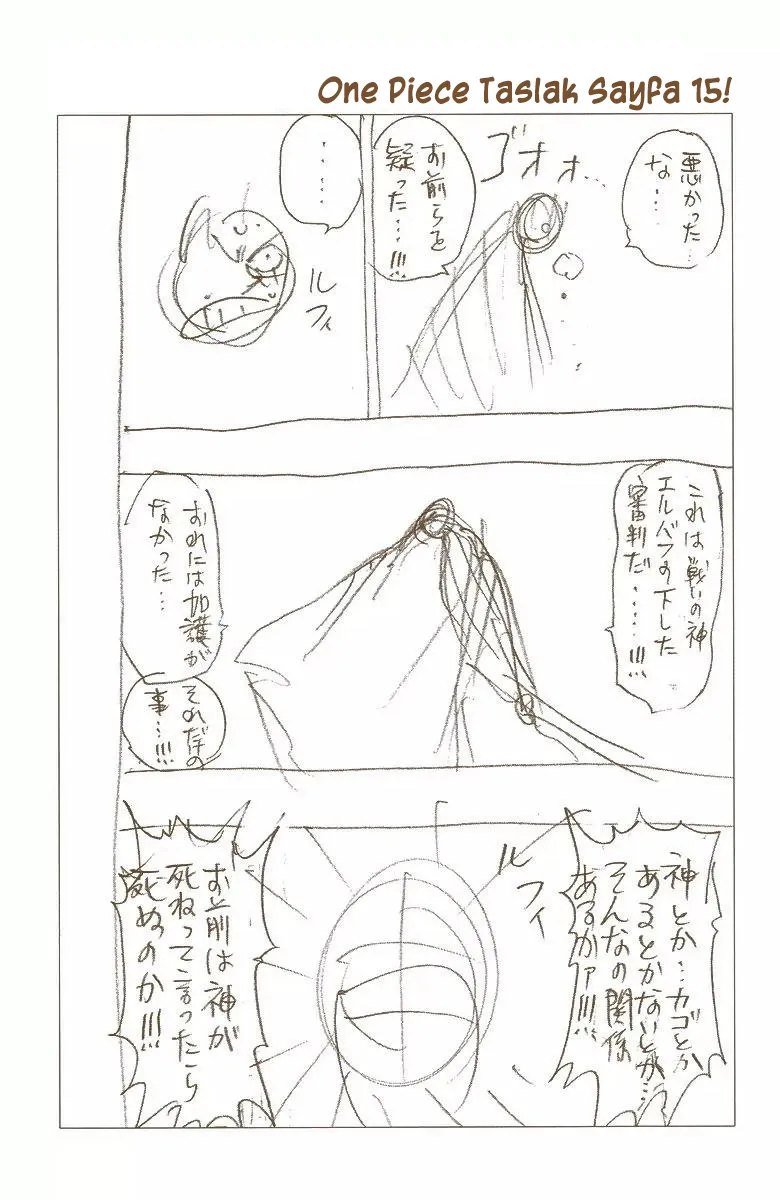 One Piece Taslak Sayfa 15!
悪かった…
な‥‥
ゴオォ…
お前らを
疑った…!!!
‥‥‥
ルフィ
これは戦いの神
エルバフの下した
審判だ‥‥‥!!!
おれには加護が
なかった…
それだけの
事…!!!
神とか…カゴとか
あるとかないとか…
そんなの関係
あるかァ!!!
ルフィ
お前は神が
死ねって言ったら
死ぬのか!!!